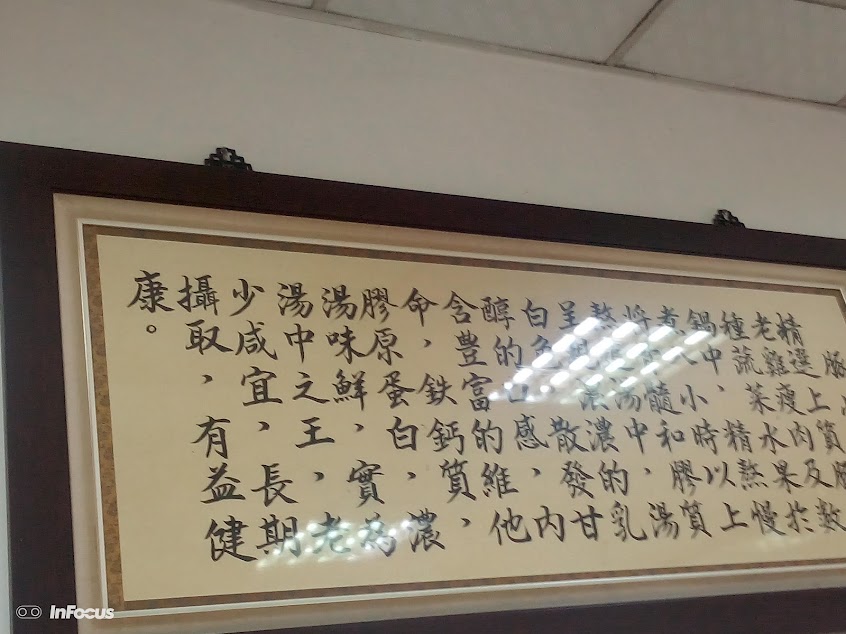 精選上質
老雞瘦肉及數
種蔬菜水果於
鍋中,精熬慢
煮八小時以上
將 髓和膠質
熬 湯中,湯
呈現濃濃的乳
白色 散發甘
醇的口感,內
含豊富的維他
命,鉄鈣質,
膠原蛋白,濃
湯味鮮,實為
湯中之王,老
少咸宜,長期
攝取,有益健
康。
InFocus